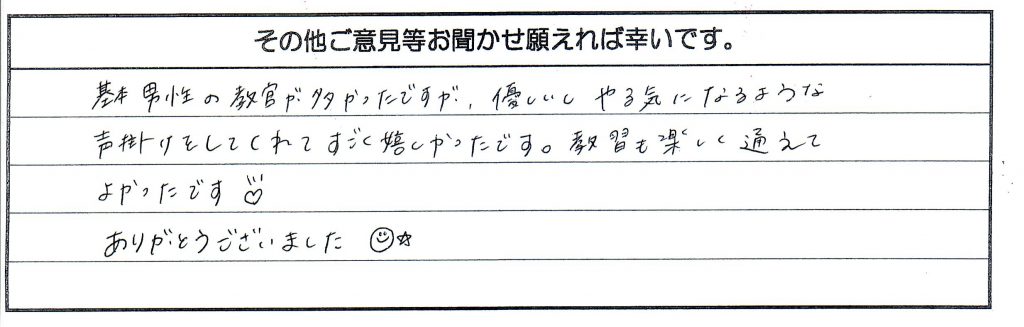 その他ご意見等お聞かせ願えれば幸いです。
基本男性の教官が多かったですが、優しいし やる気になるような
声掛けをしてくれてすごく嬉しかったです。教習も楽しく通えて
よかったです
ありがとうございました